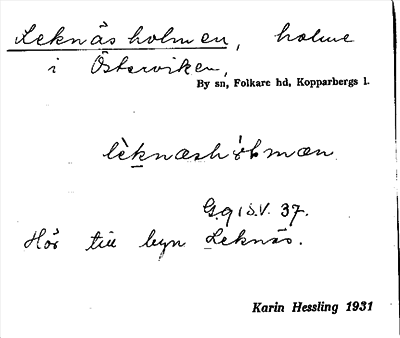 Leknäsholmen, holme
i Österviken,
By sn, Folkare hd, Kopparbergs l.
Gg i S.V. 37.
Hör till byn Leknäs.
Karin Hessling 1931